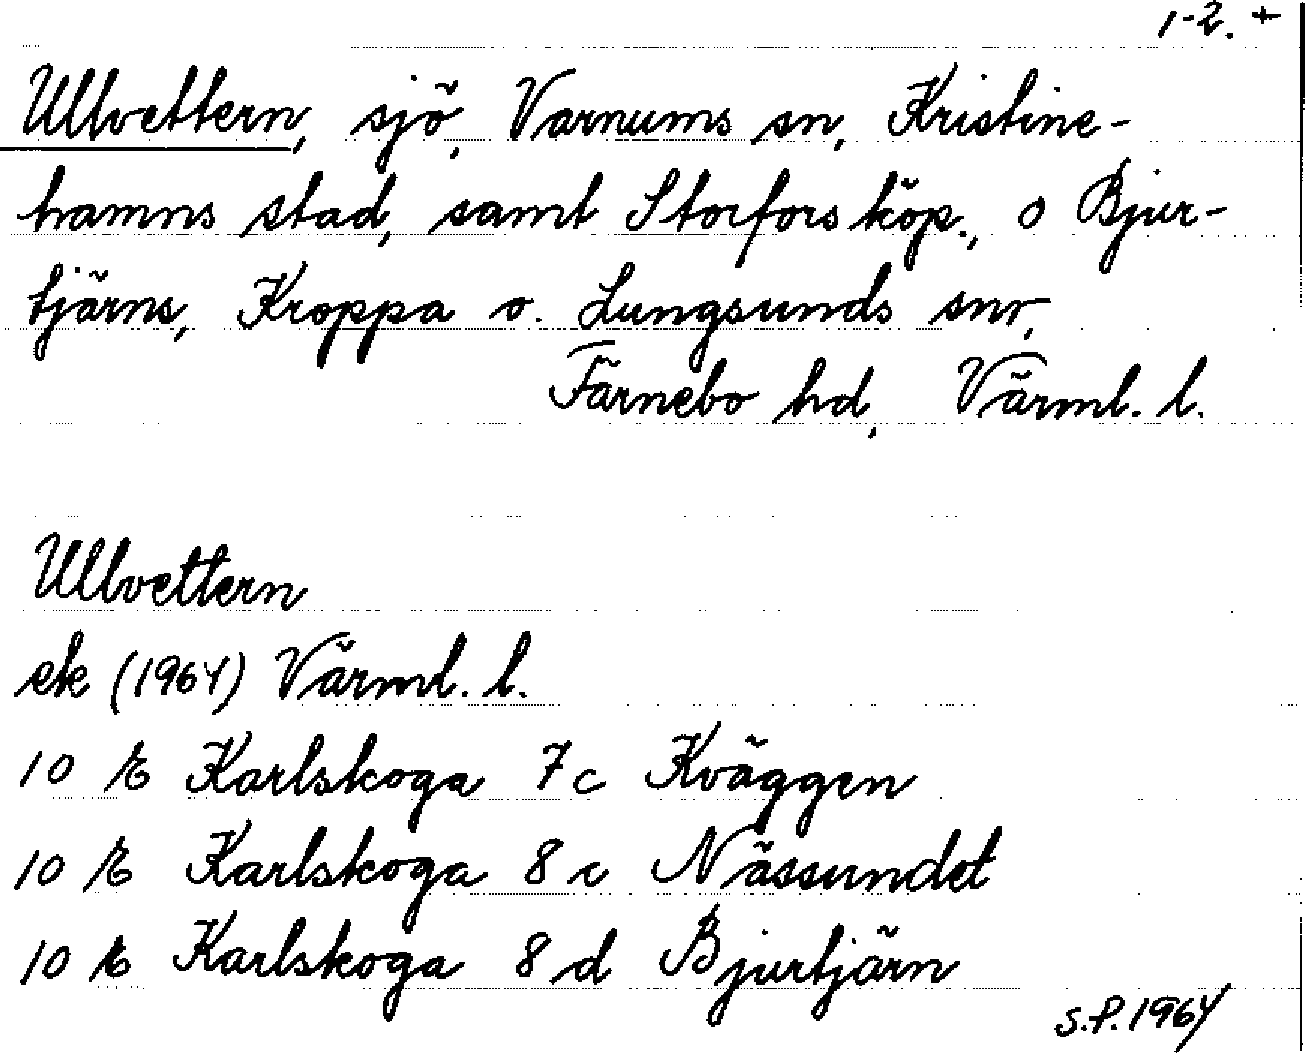 1-2. +
Ullvettern, sjö, Varnums sn, Kristine-
hamns stad, samt Storfors köp., o Bjur-
tjärns, Kroppa o. Lungsunds snr,
Färnebo hd, Värml. l.
Ullvettern
ek (1964) Värml. l.
10 E Karlskoga 7c Kväggen
10 E Karlskoga 8 c Nässundet
10 E Karlskoga 8 d Bjurtjärn
S.P. 1964